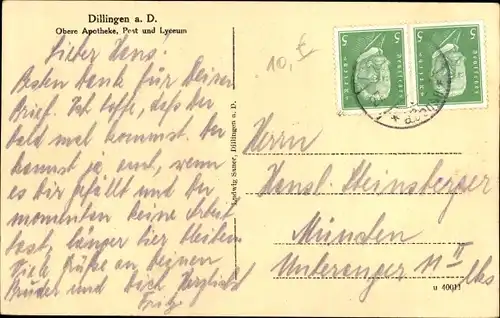 Dillingen a. D.
Obere Apotheke, Post und Lyceum
Lieber Hans.
Besten Dank für Deinen
Brief. Ich hoffe, daß Du
bald mal kommst. Du
kannst ja erst, wenn
es Dir gefällt und Du
momentan keine Arbeit
hast, länger hier bleiben.
Viele Grüße an Deinen
Bruder und Dich herzlichst
Fritz.
Ludwig Sauer, Dillingen a. D.
10,- €
5 5
5 5
Herrn
Hansl Steinsberger
München
Unteranger 11 II
lks
u 40011